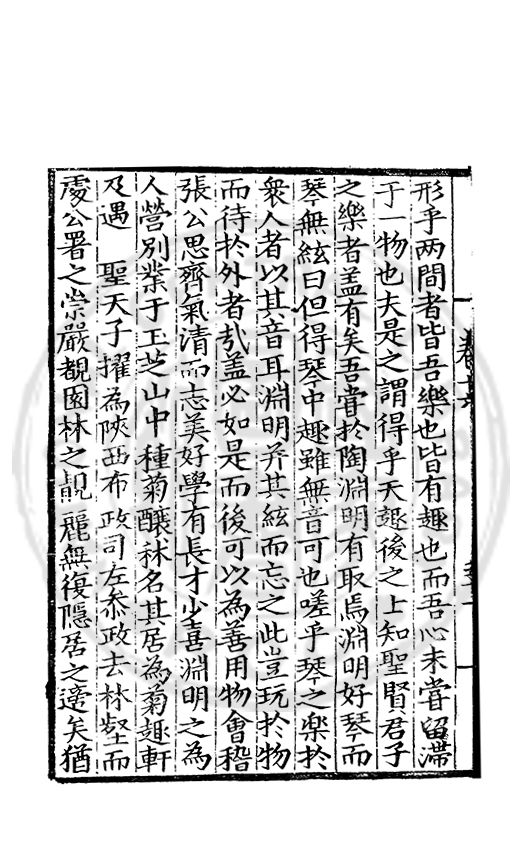 形乎两間者皆吾樂也皆有趣也而吾心未嘗留滯
于一物也夫是之謂得乎天趣後之上知聖賢君子
之樂者盖有矣吾嘗於陶淵明有取焉淵明好琴而
琴無絃曰但得琴中趣雖無音可也嗟乎琴之樂於
衆人者以其音耳淵明并其絃而忘之此豈玩於物
而待於外者㢤盖必如是而後可以為善用物會稽
張公思齊氣清而志美好學有長才少喜淵明之為
人營別業于玉芝山中種菊釀秫名其居為菊趣軒
及遇 聖天子擢為陝西布政司左叅政去林壑而
處公署之崇嚴覩園林之靚麗無復隱居之適矣猶